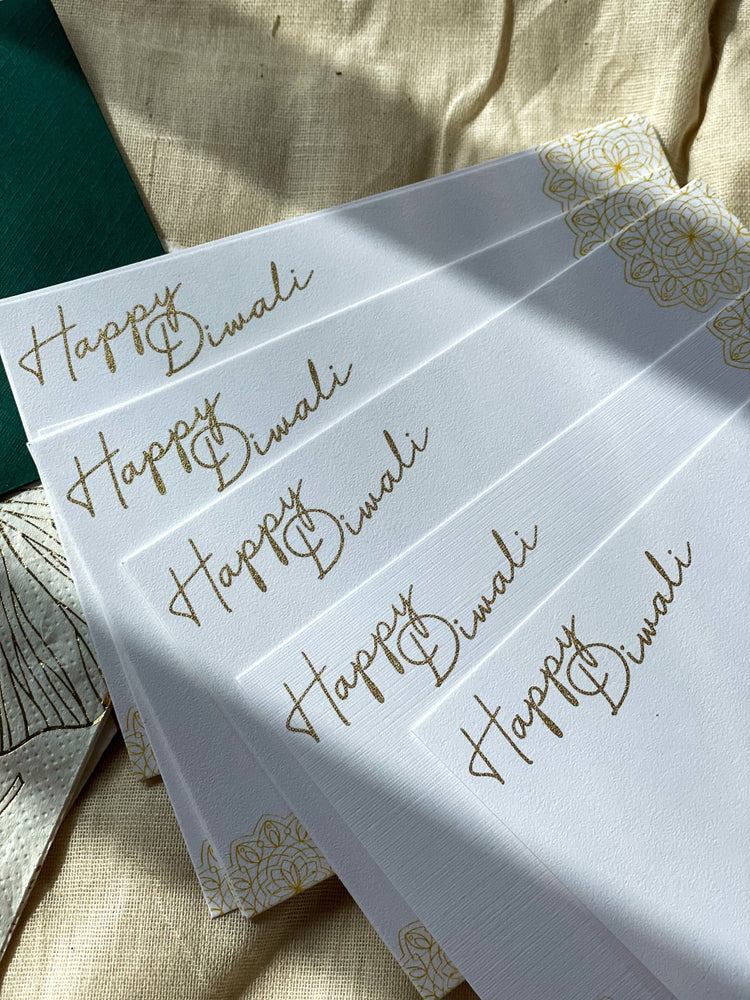 Happy
Diwali
Happy
Diwali
Happy
Diwali
Happy
Diwali
Happy
Diwali